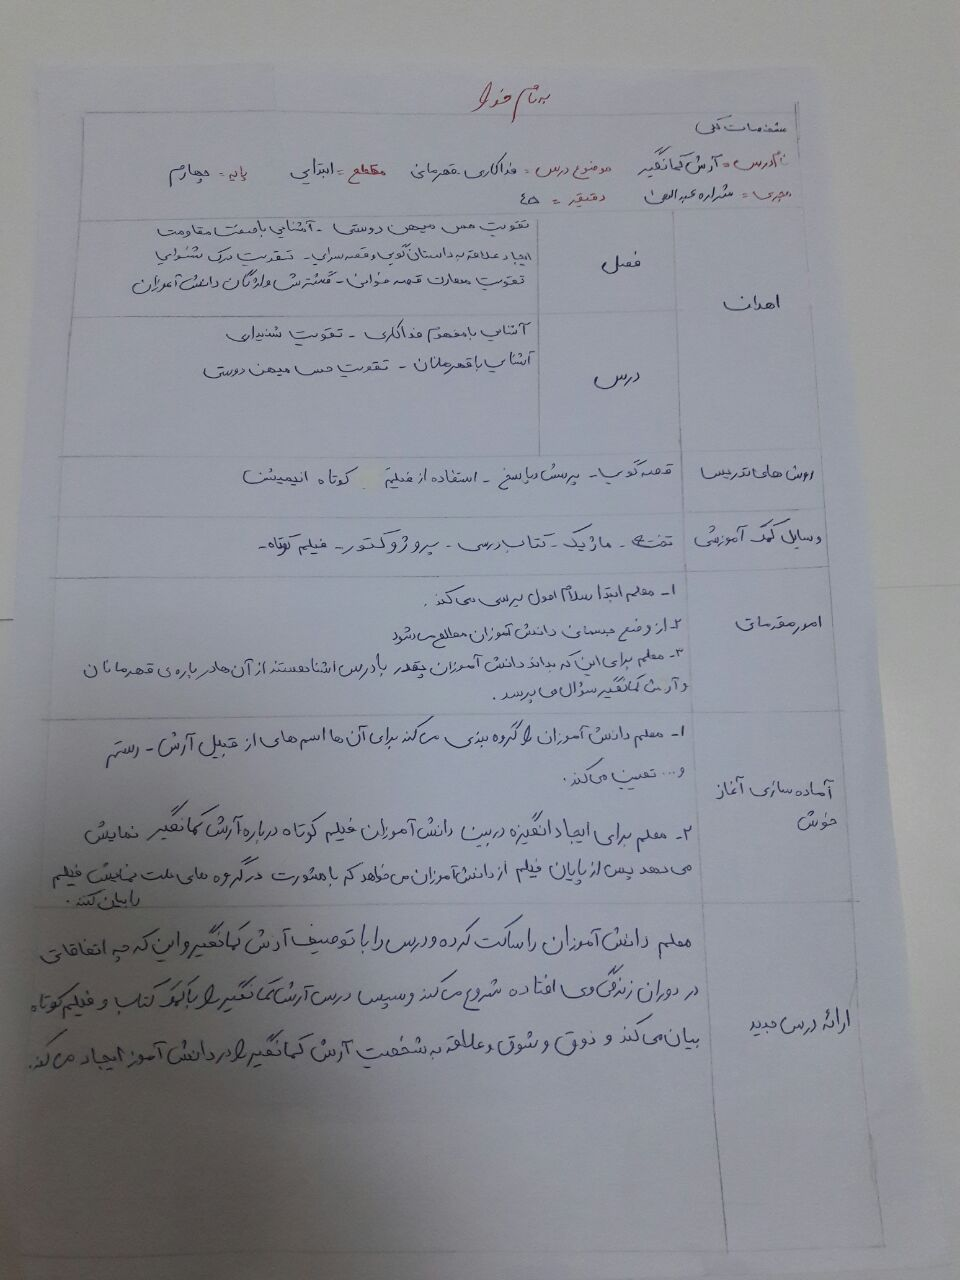 بنام خدا
مشخصات کلی
نام درس = آرش کمانگیر موضوع درس = فداکاری قهرمانی مقطع = ابتدایی پایه = چهارم
مجری = شراره دقیقه = ۴۵
اهداف
فصل
تقویت حس میهن دوستی - آشنایی با صفت مقاومت
ایجاد علاقه به داستان گویی و قصه سرایی - تقویت درک شنوایی
تقویت مهارت قصه خوانی - گسترش واژگان دانش آموزان
درس
آشنایی با مفهوم فداکاری - تقویت شنیداری
آشنایی با قهرمانان - تقویت حس میهن دوستی
روش های تدریس
قصه گویی - پرسش و پاسخ - استفاده از فیلم کوتاه انیمیشن
وسایل کمک آموزشی
تخته - ماژیک - کتاب درسی - پروژوکتور - فیلم کوتاه -
امور مقدماتی
۱- معلم ابتدا سلام احوال پرسی می کند .
۲- از وضع جسمانی دانش آموزان مطلع می شود
۳- معلم برای این که بداند دانش آموزان چقدر با درس اشنا هستند از آن ها درباره ی قهرمانان
و آرش کمانگیر سؤال می پرسد .
آماده سازی آغاز
خوش
۱- معلم دانش آموزان را گروه بندی می کند برای آن ها اسم های از قبیل آرش - رستم
و ... تعیین می کند .
۲- معلم برای ایجاد انگیزه در بین دانش آموزان فیلم کوتاه درباره آرش کمانگیر نمایش
می دهد پس از پایان فیلم از دانش آموزان می خواهد که با مشورت در گروه های علت نمایش فیلم
را بیان کنند .
ارائه درس جدید
معلم دانش آموزان را ساکت کرده و درس را با توصیف آرش کمانگیر و این که چه اتفاقاتی
در دوران زندگی وی افتاده شروع می کند و سپس درس آرش کمانگیر را با کمک کتاب و فیلم کوتاه
بیان می کند و ذوق و شوق و علاقه به شخصیت آرش کمانگیر را در دانش آموز ایجاد می کند .